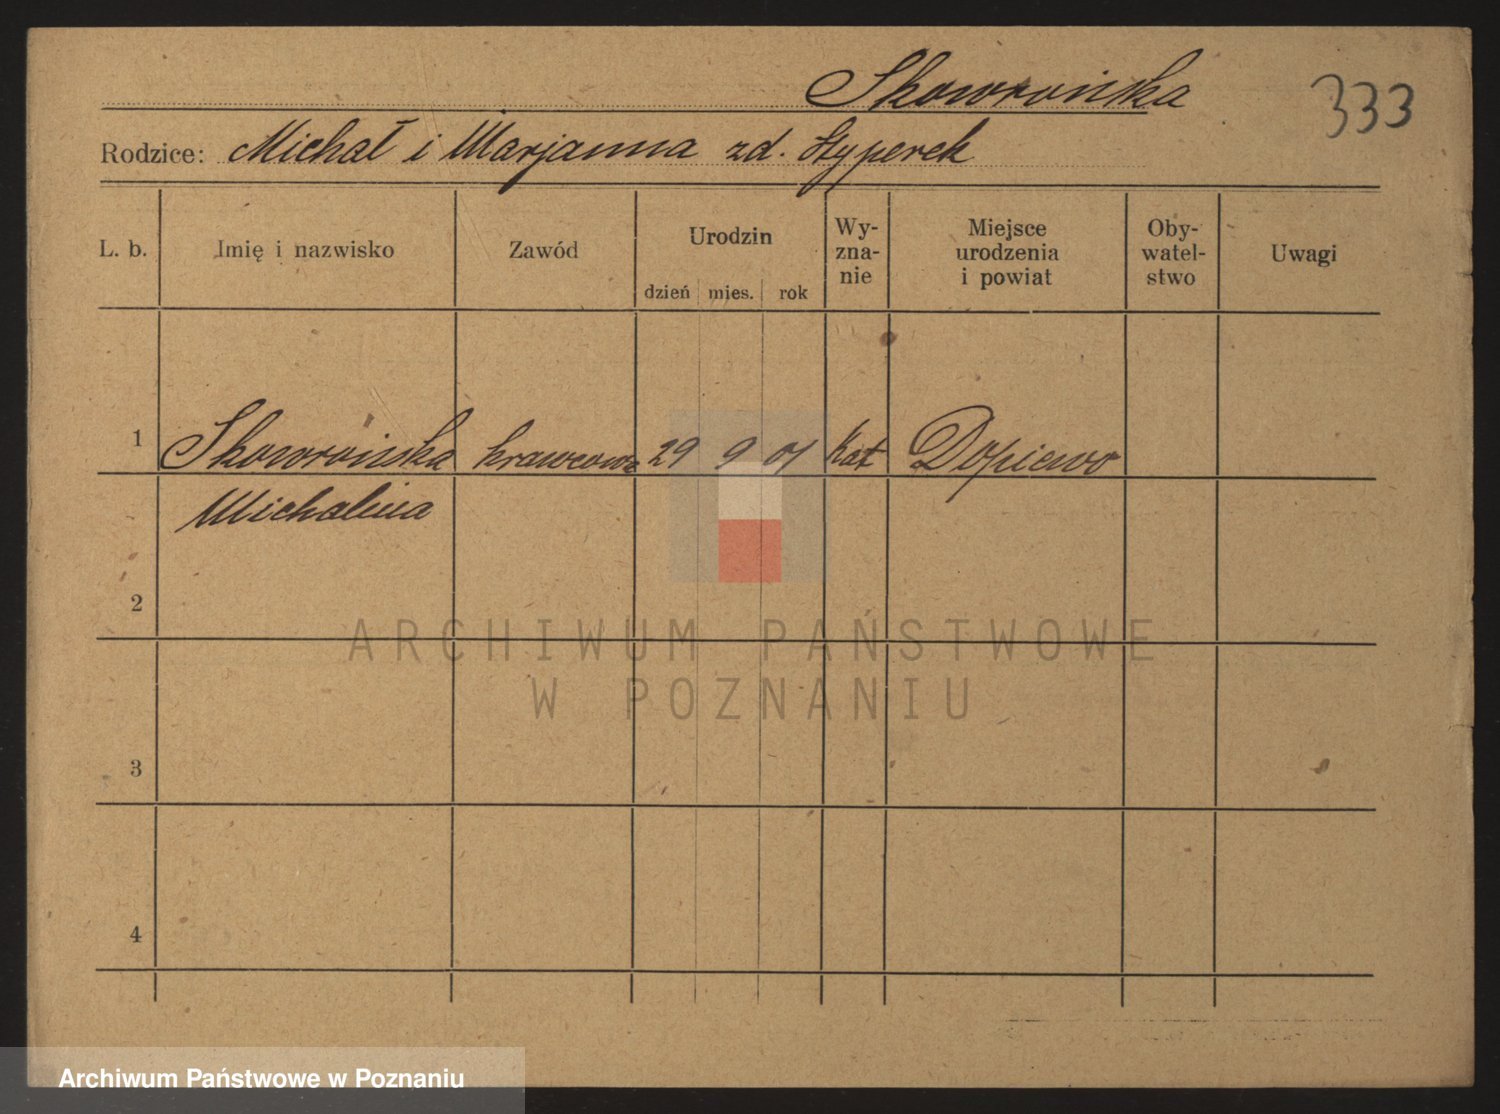 Skowrońska 333
Rodzice: Michał i Marjanna zd. Styperek
L. b. Imię i nazwisko Zawód Urodzin dzień mies. rok Wy-zna-nie Miejsce urodzenia i powiat Oby-watel-stwo Uwagi
1 Skowrońska krawcowa 29 9 01 Kat Dopiewo
Michalina
2
ARCHIWUM PAŃSTWOWE
W POZNANIU
3
4
Archiwum Państwowe w Poznaniu